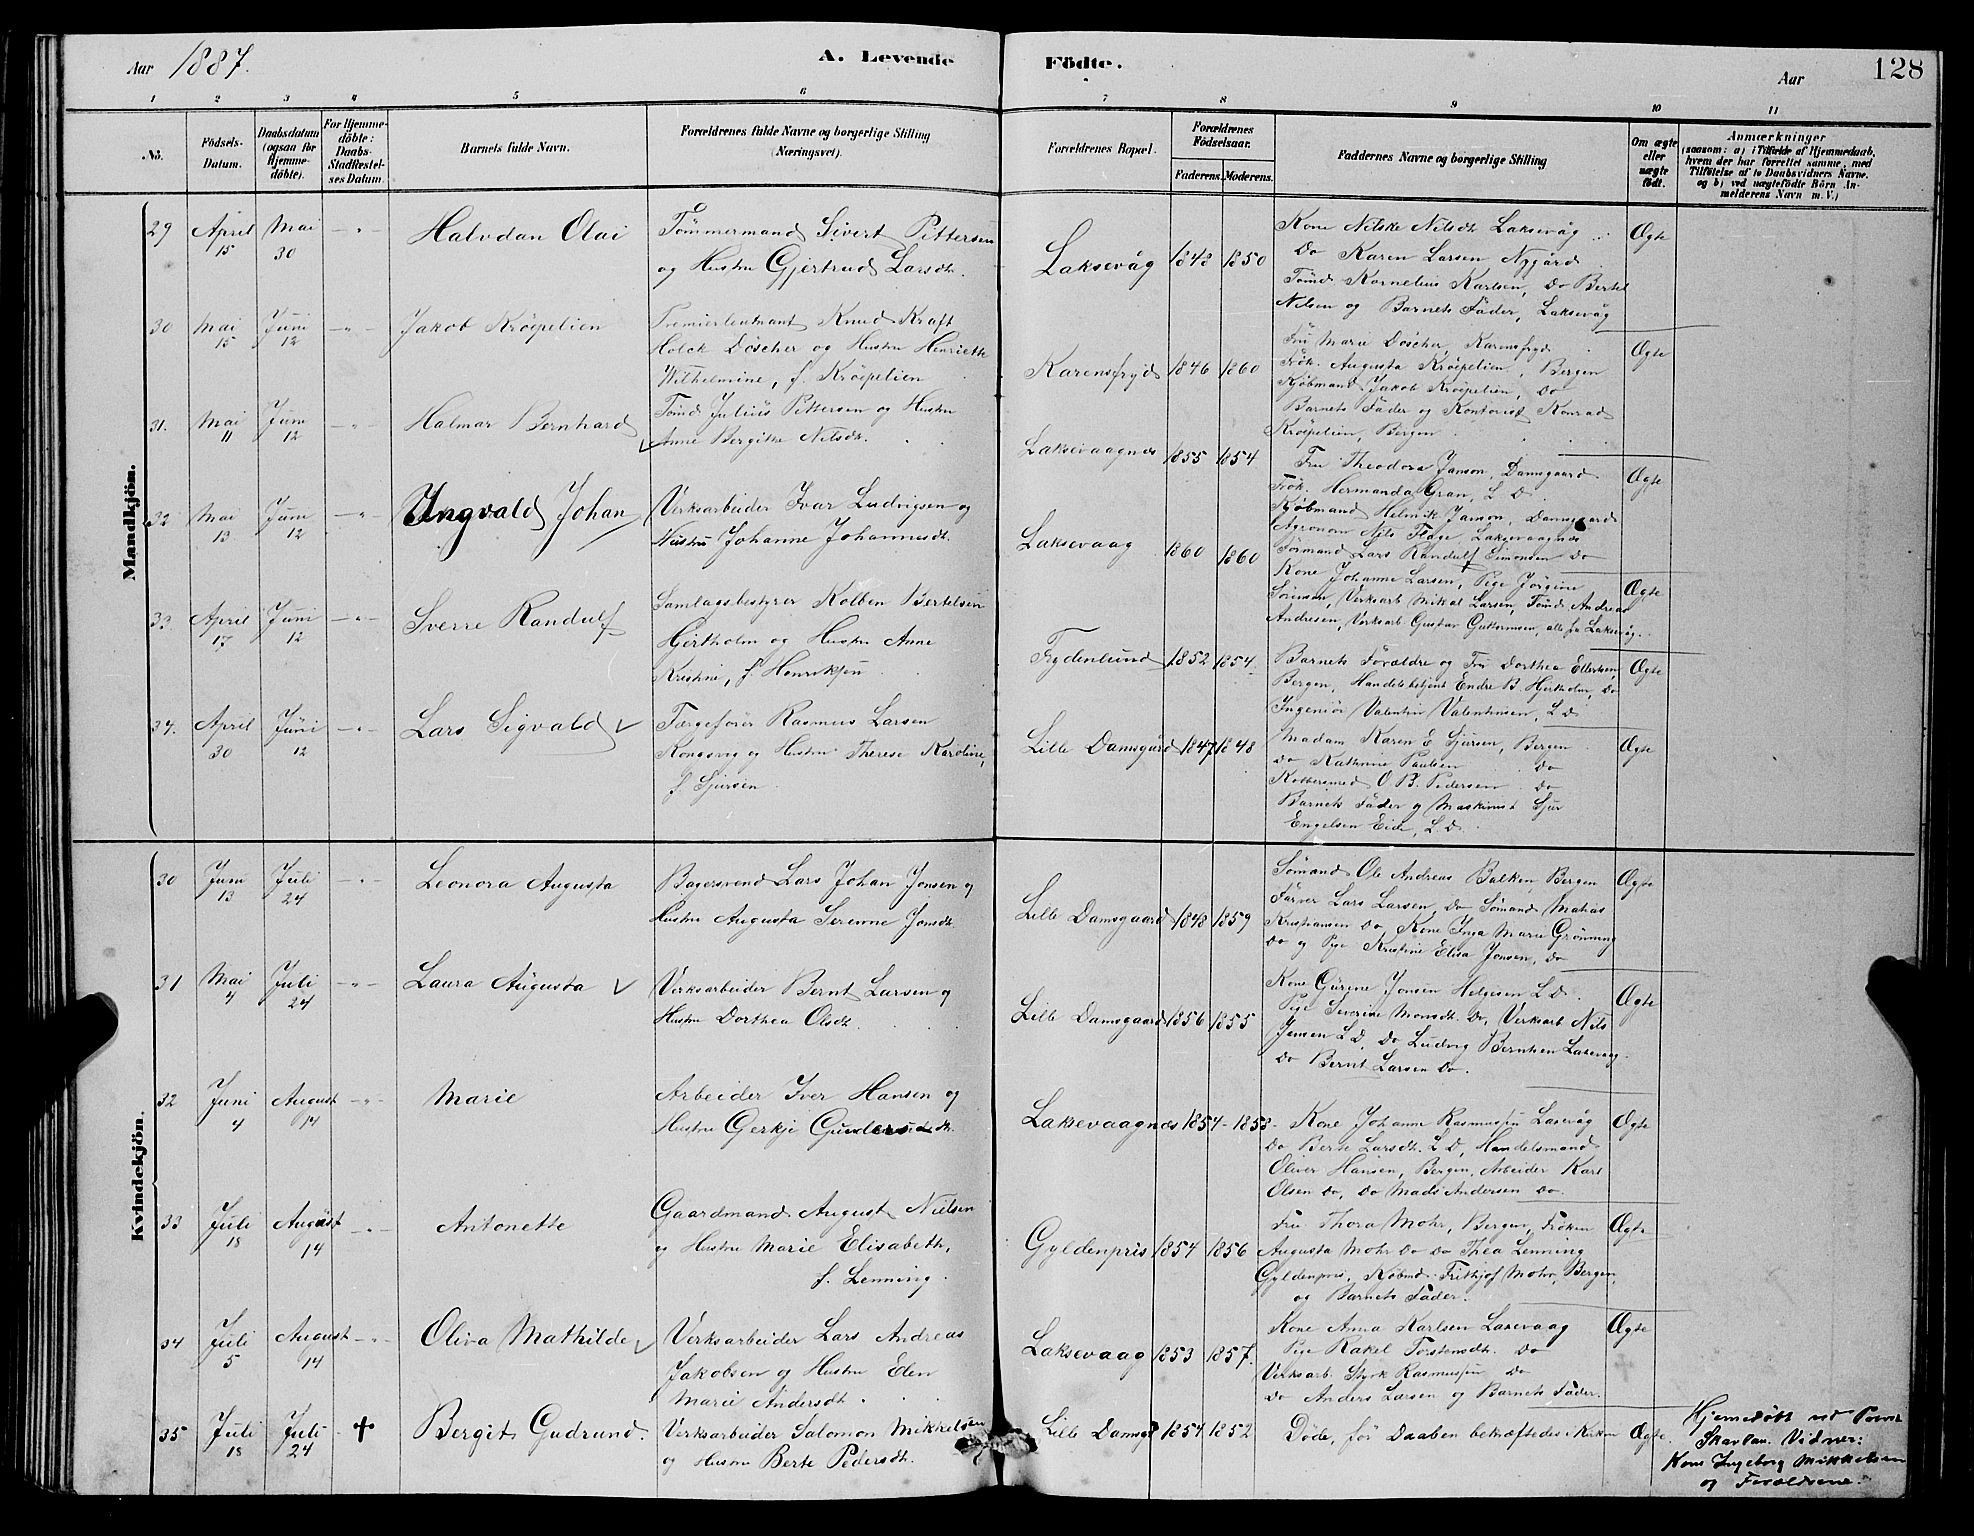 Aar 1887.
A. Levende Födte.
Aar
128
1 2 3 4 5 6 7 8 9 10 11
No.
Födsels-Datum.
Daabsdatum (ogsaa for Hjemme-döbte).
For Hjemme-döbte: Daabs-Stadfæstel-ses Datum.
Barnets fulde Navn.
Forældrenes fulde Navne og borgerlige Stilling (Næringsvei).
Forældrenes Bopæl.
Forældrenes Födselsaar.
Faderens. Moderens.
Faddernes Navne og borgerlige Stilling
Om ægte eller uægte födt.
Anmærkninger
(saasom: a) i Tilfælde af Hjemmedaab,
hvem der har forrettet samme, med
Tilföielse af to Daabsvidners Navne.
og b) ved uægtefödte Börn An-
melderens Navn m. V.)
Mandkjön.
29 April 15 Mai 30 - " - Halvdan Olai
Tömmermand Sivert Pettersen
og Hustru Gjertrud Larsdtr.
Laksevåg 1848 1850
Kone Nilske Nilsdtr Laksevåg
Do Karen Larsen Nygård
Tömd Kornelius Karlsen, Do Bertel
Nilsen og Barnets Fader, Laksevåg
Ægte
30 Mai 15 Juni 12 - " - Jakob Kröepelien
Premierleutnant Knud Kraft
Holck Döscher og Hustru Henriette
Wilhelmine, f. Kröepelien
Karensfryd 1846 1860
Fru Marie Döscher, Karensfryd
Frök. Augusta Kröepelien, Bergen
Kjöbmand Jakob Kröepelien, Do
Barnets Fader og Kontorist Konrad
Kröepelien, Bergen
Ægte
31. Mai 11 Juni 12 - " - Halmar Bernhard
Tömd Julius Pettersen og Hustru
Anne Bergitte Nilsdtr.
Laksevaagnes 1855 1854
Fru Theodora Janson, Damsgaard
Frök. Hermanda Gran, L D.
Kjöbmand Helmik Janson, Damsgaard
Agronom Nils Flage, Laksevaagnes
Formand Lars Randulf Simonsen Do
Ægte
32 Mai 13 Juni 12 - " - Yngvald Johan
Verksarbeider Ivar Ludvigsen og
Hustru Johanne Johannesdtr.
Laksevaag 1860 1860
Kone Johanne Larsen, Pige Jörgine
Sörensen, Verksarb Mikal Larsen, Tömd Andreas
Andresen, Verksarb. Gustav Guttormsen, alle fra Laksevåg.
Ægte
33. April 17 Juni 12 - " - Sverre Randulf
Samlagsbestyrer Kolben Bertelsen
Hertholm og Hustru Anne
Kristine, f. Henriksen
Frydenlund 1852 1854
Barnets Forældre og Fru Dorthea Ellertsen,
Bergen, Handelsbetjent Endre B. Hertholm, Do
Ingeniör Valentin Valentinsen, L D.
Ægte
34. April 30 Juni 12 - " - Lars Sigvald
Færgeförer Rasmus Larsen
Kongsvig og Hustru Therese Karoline,
f Sjursen
Lille Damsgård 1847 1848
Madam Karen E Sjursen, Bergen
do Kathrine Paulsen Do
Kobbersmed O B. Pedersen Do
Barnets Fader og Maskinist Sjur
Engelsen Eide, L D.
Ægte
Kvindekjön.
30 Juni 13 Juli 24 - " - Leonora Augusta
Bagersvend Lars Johan Jonsen og
Hustru Augusta Serenne Jonsdtr.
Lille Damsgaard 1848 1859
Sömand Ole Andreas Balken, Bergen
Farver Lars Larsen, Do Sömand Mathias
Kristiansen Do, Kone Inga Marie Grönning
Do og Pige Kristine Elisa Jonsen, Do
Ægte
31 Mai 4 Juli 24 - " - Laura Augusta
Verksarbeider Bernt Larsen og
Hustru Dorthea Olsdtr.
Lille Damsgaard 1856 1855
Kone Gurine Jonsen Helgesen L D.
Pige Severine Monsdtr. Do, Verksarb Nils
Jensen L D, Do Ludvig Berntsen Laxevaag
Do Bernt Larsen Do.
Ægte
32 Juni 4 August 14 - " - Marie
Arbeider Iver Hansen og
Hustru Gerkje Gundersdtr.
Laksevaagnæs 1854 - 1853
Kone Johanne Rasmussen Laxevåg
Do Berte Larsdtr. L D, Handelsmand
Oliver Hansen, Bergen, Arbeider Karl
Olsen Do, Do Mads Andersen Do.
Ægte
33 Juli 18 August 14 - " - Antonette
Gaardmand August Nielsen
og Hustru Marie Elisabeth,
f. Lenning.
Gyldenpris 1854 1856
Fru Thora Mohr, Bergen, Fröken
Augusta Mohr Do Do Thea Lenning
Gyldenpris, Kjöbmd. Frithjof Mohr, Bergen,
og Barnets Fader.
Ægte
34 Juli 5 August 14 - " - Oliva Mathilde
Verksarbeider Lars Andreas
Jakobsen og Hustru Elen
Marie Andersdtr.
Laksevaag 1853 1857.
Kone Anna Karlsen Laxevaag
Pige Rakel Torstensdtr. Do
Verksarb. Styrk Rasmussen Do
Do Anders Larsen og Barnets Fader.
Ægte
35 Juli 18 Juli 24 + Bergit Gudrund.
Verksarbeider Salomon Mikkelsen
og Hustru Berte Pedersdtr.
Lille Damsgd 1854 1852
Döde, för Daaben bekræftedes i Kirken
Ægte.
Hjemedöbt ved Provst
Skavlan. Vidner:
Kone Ingeborg Mikkelsen
og Forældrene.